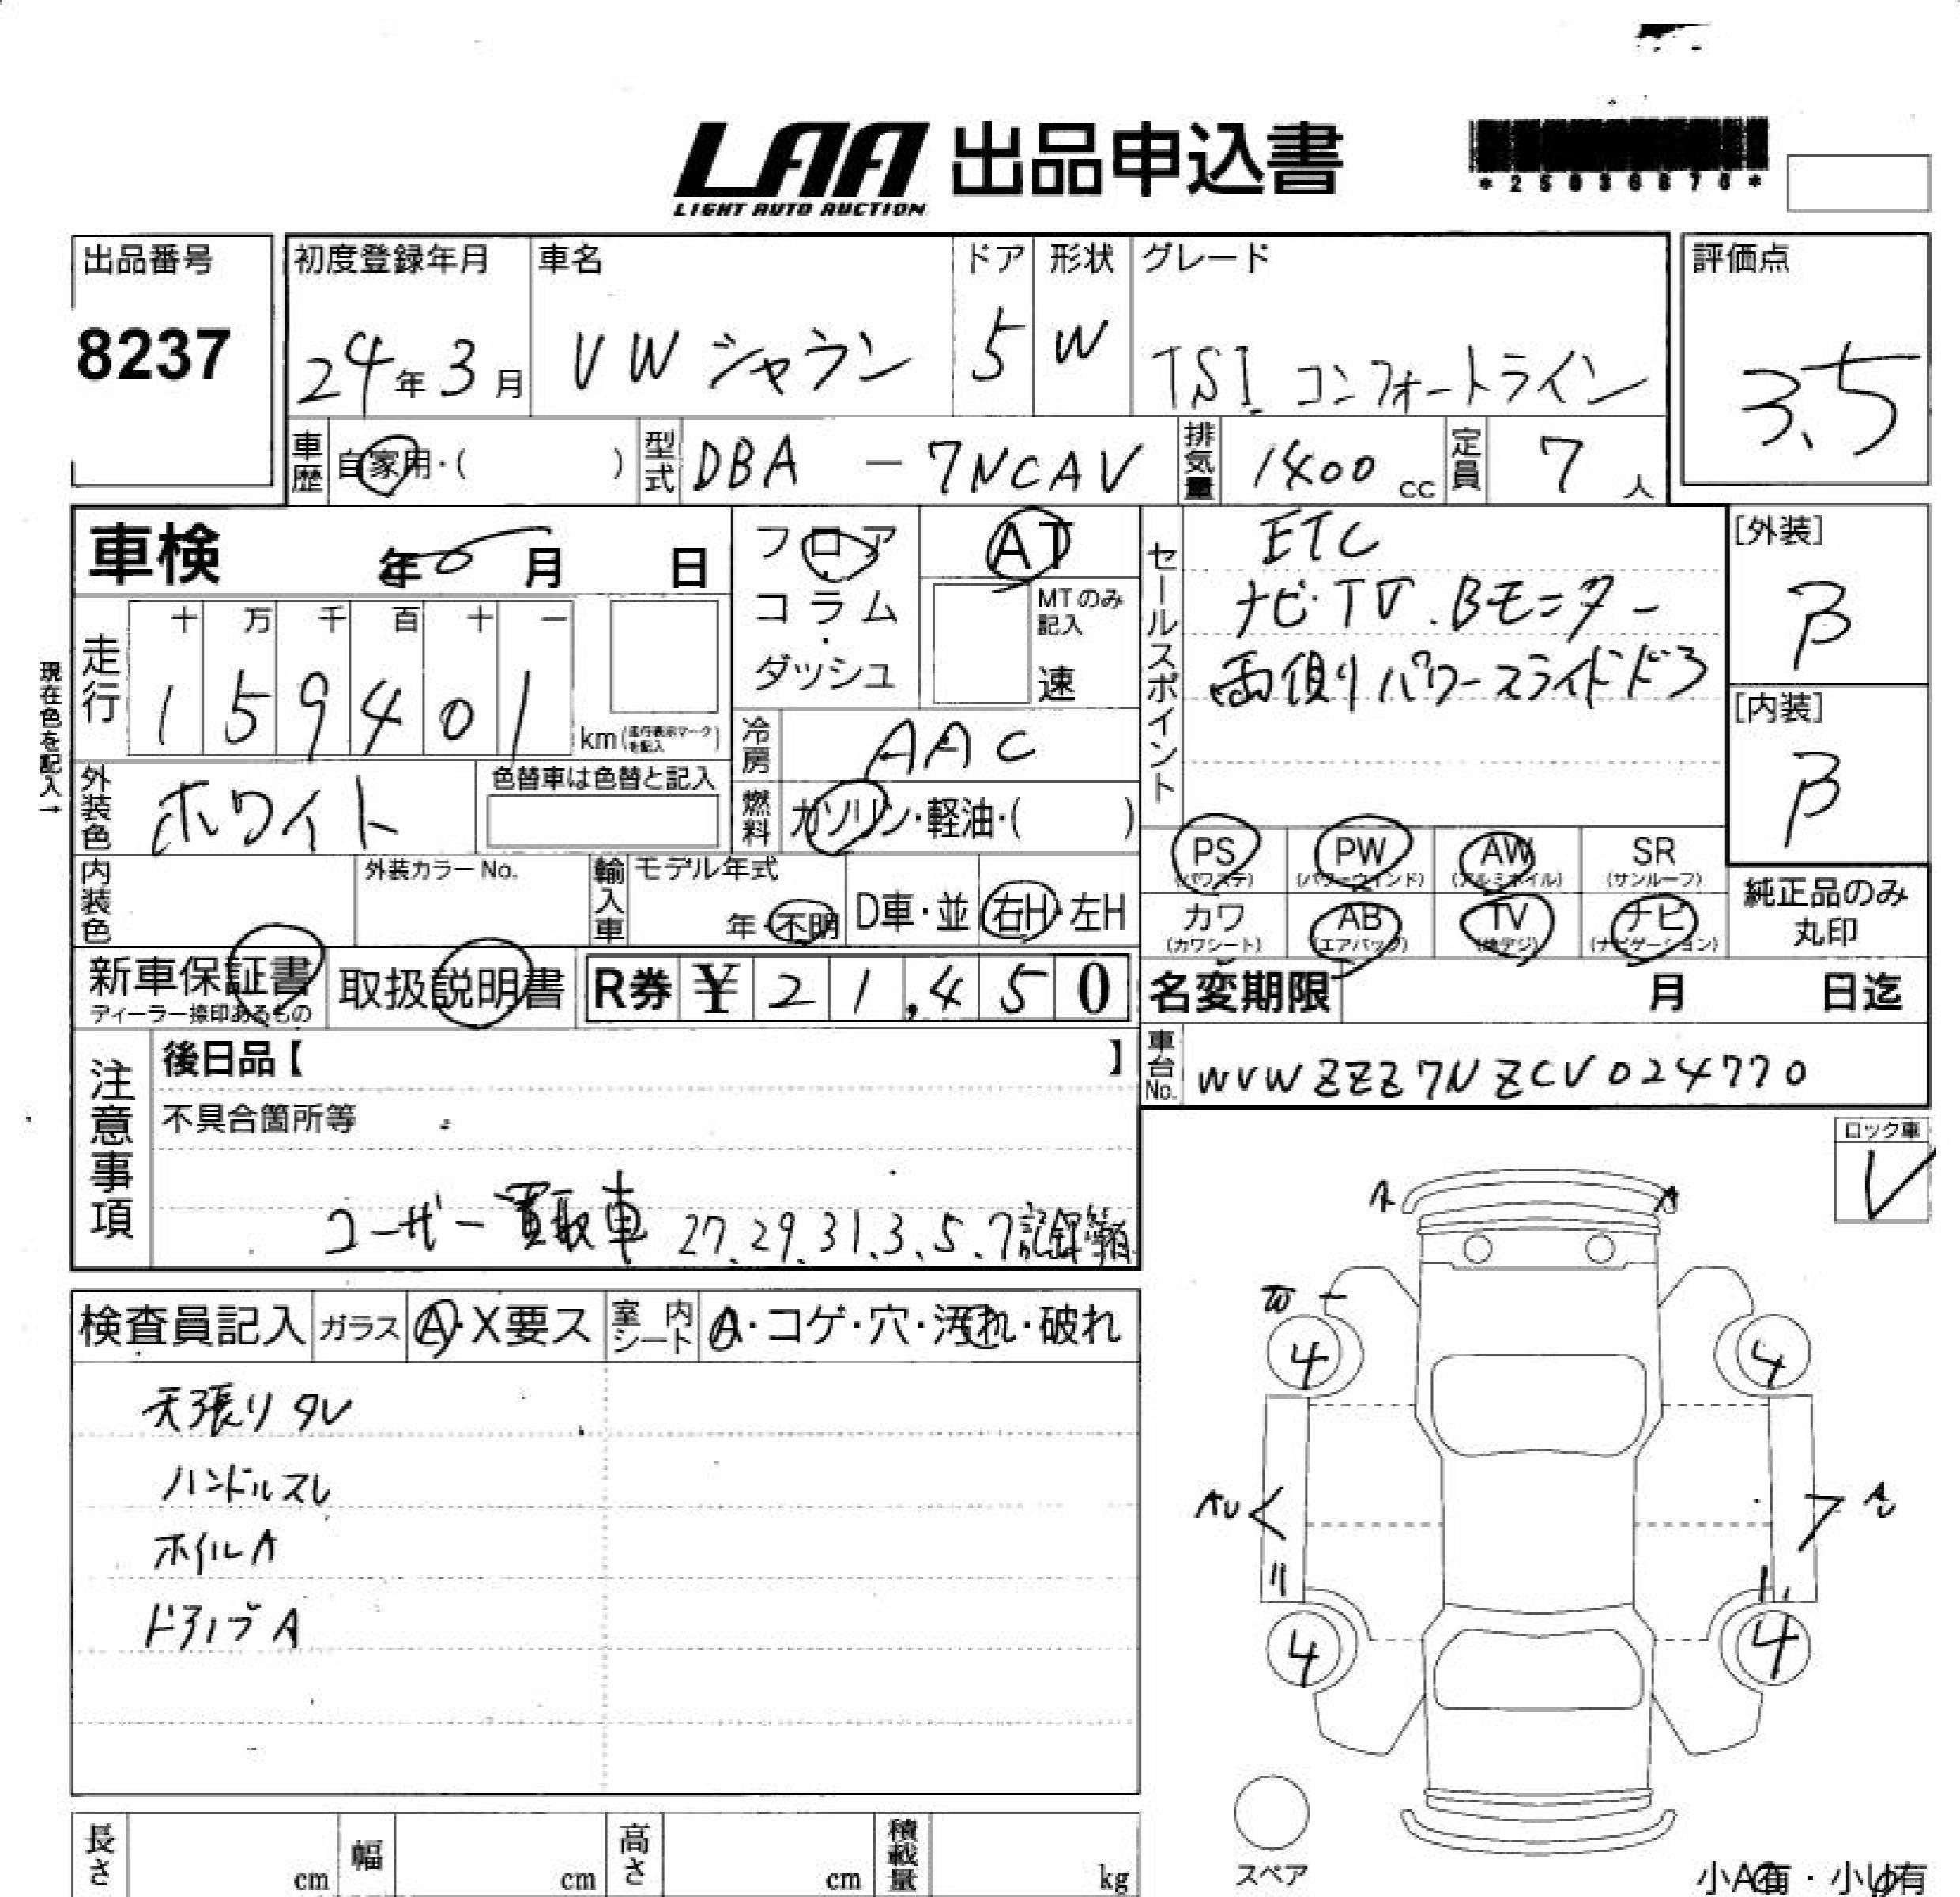 LAA 出品申込書
LIGHT AUTO AUCTION
*25030876*
出品番号 初度登録年月 車名 ドア 形状 グレード 評価点
8237 24年3月 VW シャラン 5 W TSI コンフォートライン 3.5
車歴 自家用・( ) 型式 DBA - 7NCAV 排気量 1400 cc 定員 7 人
車検 年 0 月 日
フロア・コラム・ダッシュ
AT
MTのみ記入
速
セールスポイント
ETC
ナビ・TV.Bモニター
両側りパワースライドドア
[外装]
B
[内装]
B
現在色を記入→
走行 十 万 千 百 十 一
1 5 9 4 0 1 km(走行表示マークを記入)
冷房 AAC
外装色 ホワイト 色替車は色替と記入
燃料 ガソリン・軽油・( )
PS (パワステ) PW (パワーウインド) AW (アルミホイル) SR (サンルーフ)
カワ (カワシート) AB (エアバッグ) TV (地デジ) ナビ (ナビゲーション)
純正品のみ丸印
内装色 外装カラーNo. 輸入車 モデル年式 年・不明 D車・並 右H・左H
新車保証書 取扱説明書 R券 ¥ 21,450
ディーラー捺印あるもの
名変期限 月 日迄
車台No. WVWZZZ7NZCV024770
注意事項
後日品【 】
不具合箇所等
ユーザー買取車 27.29.31.3.5.7記録簿有
ロック車
検査員記入 ガラス A・X要ス 室内シート A・コゲ・穴・汚れ・破れ
天張りタレ
ハンドルスレ
ホイルA
ドアノブA
A A
W
4 4
AU A
4 4
スペア
長さ cm 幅 cm 高さ cm 積載量 kg
小A有・小U有